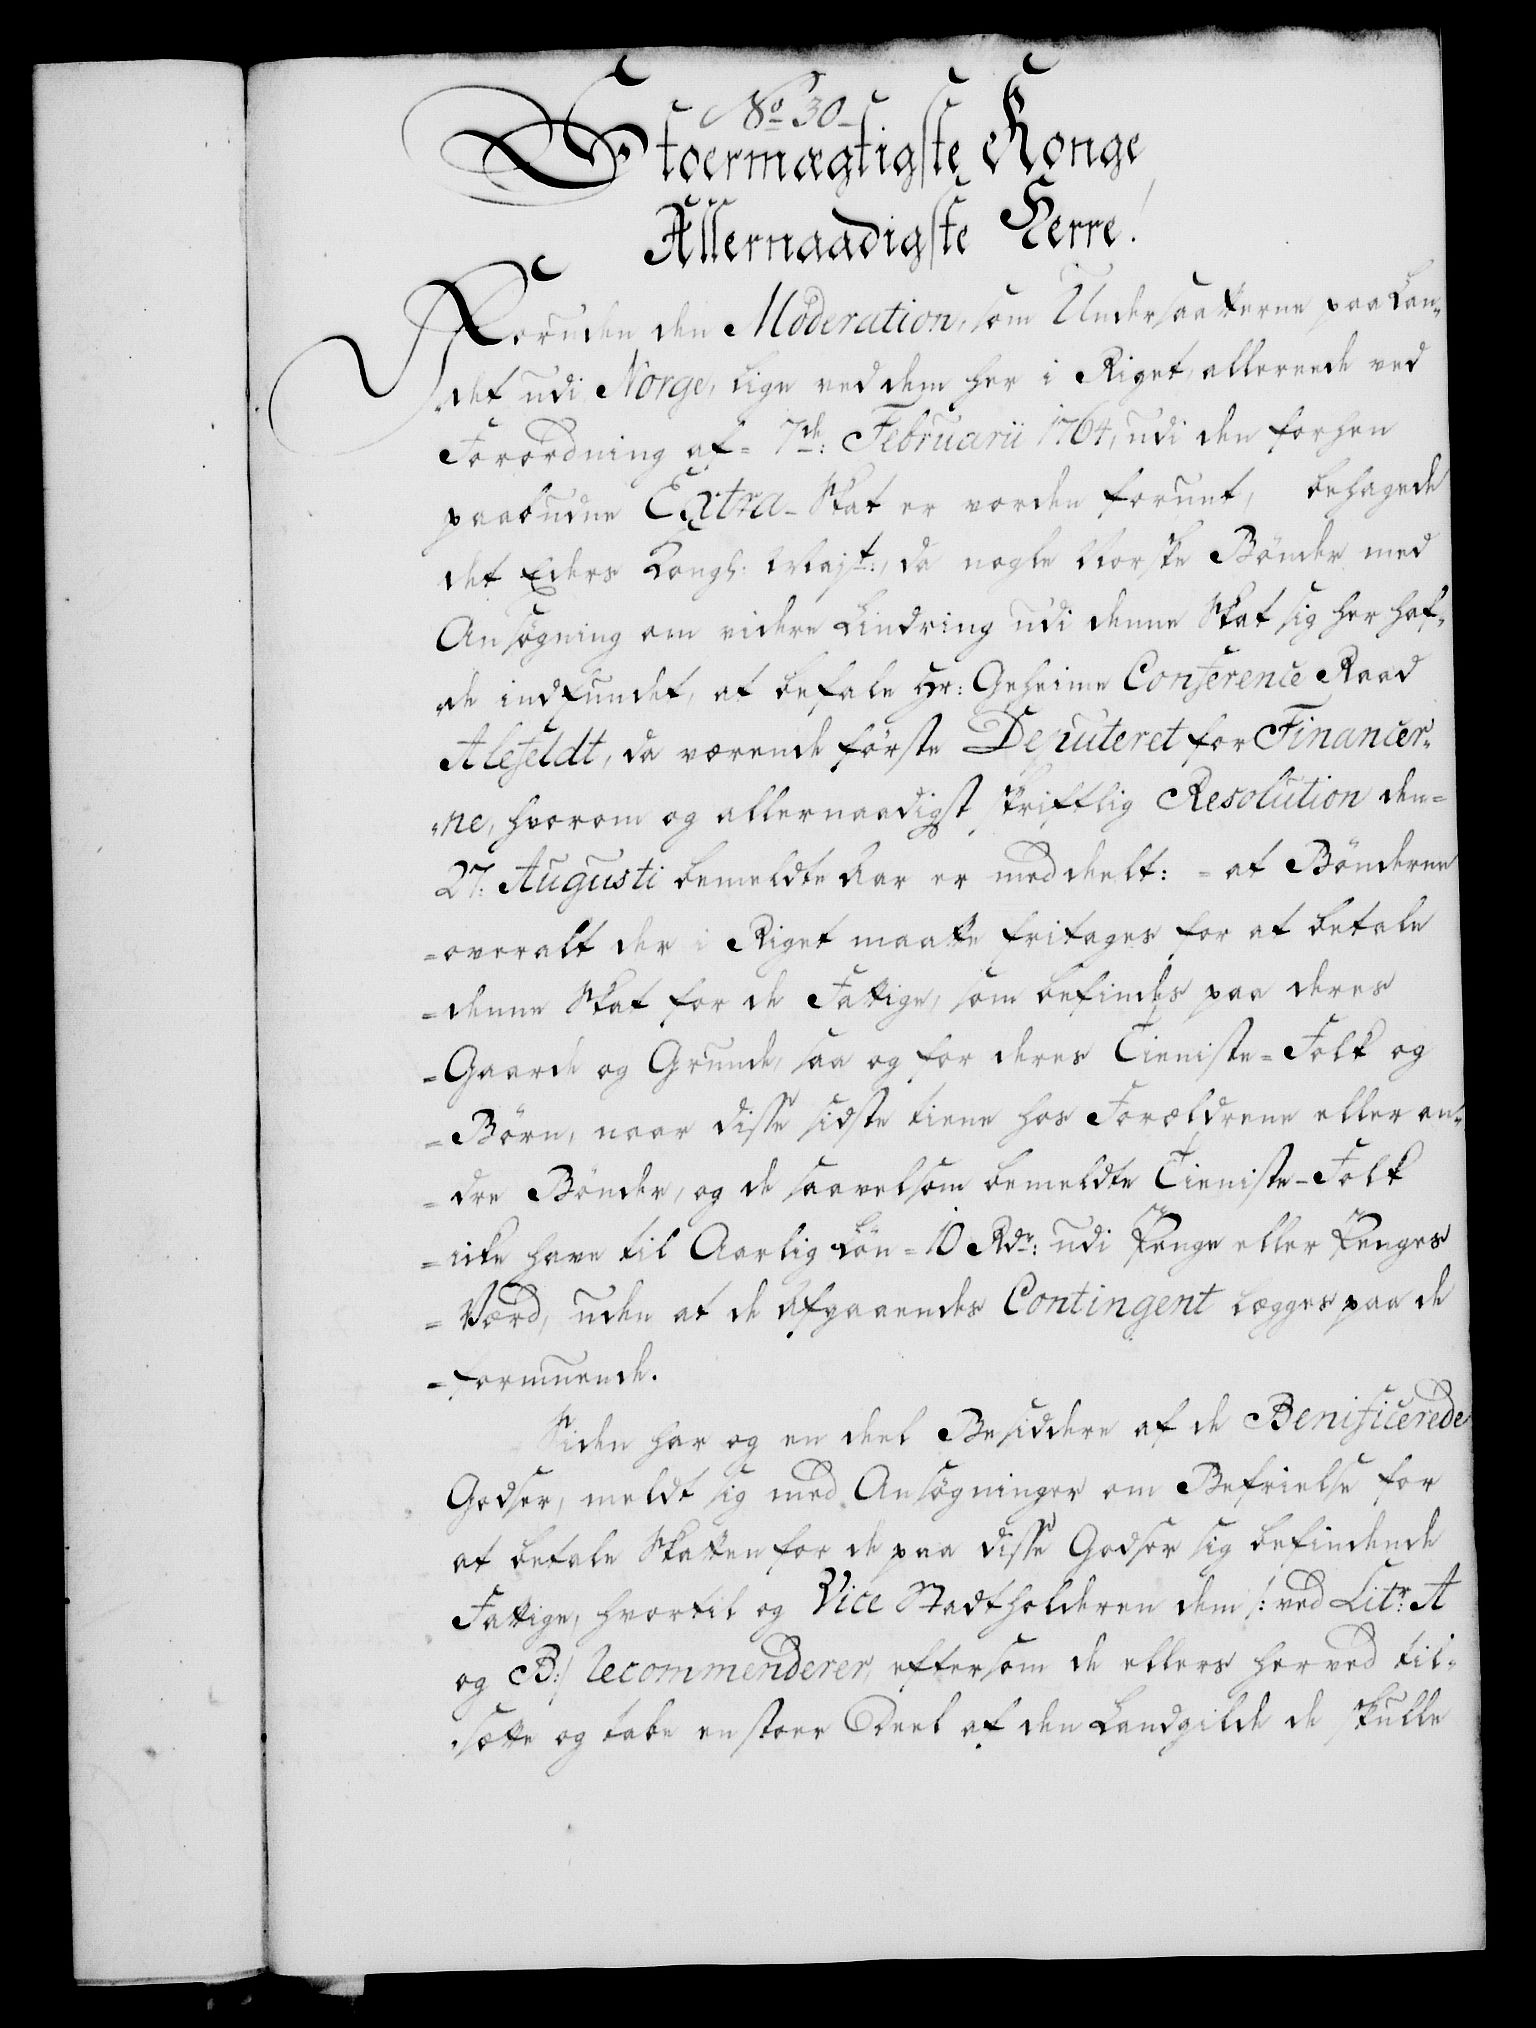 No 30
Stoermægtigste Konge
Allernaadigste Herre!
Foruden den Moderation, som Undersaatterne paa Lan-
det udi Norge, lige ved dem her i Riget, allereede ved
Forordning af 7de: Februarii 1764, udi den forhen
paabudne Extra-Skat er vorden forunt, behagede
det Eders Kongl: Majt:, da nogle Norske Bønder med
Ansøgning om videre Lindring udi denne Skat sig her haf-
de indfundet, at befale Hr: Geheime Conference Raad
Alefeldt, da værende første Deputeret for Financer-
ne, hvorom og allernaadigst skriftlig Resolution den
27: Augusti bemeldte Aar er meddeelt: = at Bønderne
= overalt der i Riget maatte fritages for at betale
= denne Skat for de Fattige, som befindes paa deres
= Gaarde og Grunde, saa og for deres Tieniste-Folk og
= Børn, naar disse sidste tiene hos Forældrene eller an-
= dre Bønder, og de saavelsom bemeldte Tieniste-Folk
= icke have til Aarlig Løn = 10 Rdr: udi Penge eller Penges
= Værd, uden at de Afgaaendes Contingent lægges paa de
= formuende.
Siden har og en deel Besiddere af de Benificerede
Godser, meldt sig med Ansøgninger om Befrielse for
at betale Skatten for de paa disse Godser sig befindende
Fattige, hvortil og Vice Stadtholderen dem /: ved Litr: A
og B:/ recommenderer, eftersom de ellers herved til-
sætte og tabe en stoer Deel af den Landgilde de skulle